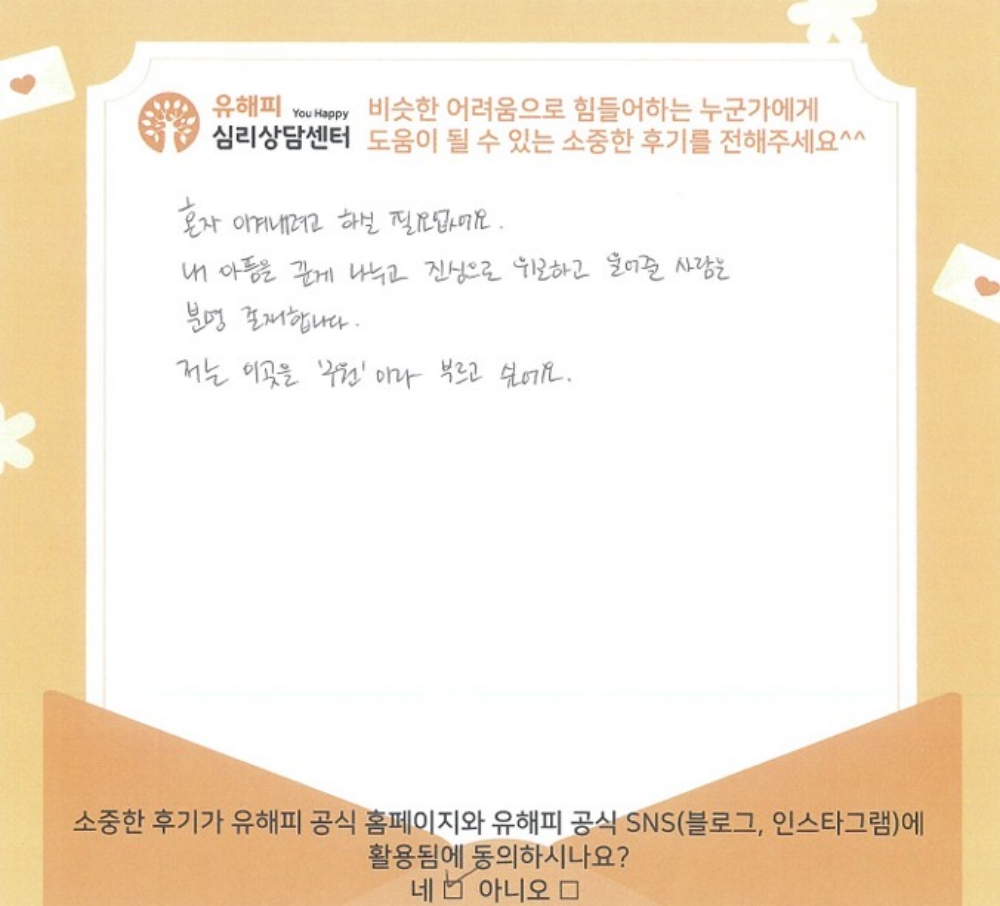 유해피 You Happy
심리상담센터
비슷한 어려움으로 힘들어하는 누군가에게
도움이 될 수 있는 소중한 후기를 전해주세요^^
혼자 이겨내려고 하실 필요없어요.
내 아픔을 함께 나누고 진심으로 위로하고 울어줄 사람은
분명 존재합니다.
저는 이곳을 '구원'이라 부르고 싶어요.
소중한 후기가 유해피 공식 홈페이지와 유해피 공식 SNS(블로그, 인스타그램)에
활용됨에 동의하시나요?
네 ☑ 아니오 ☐